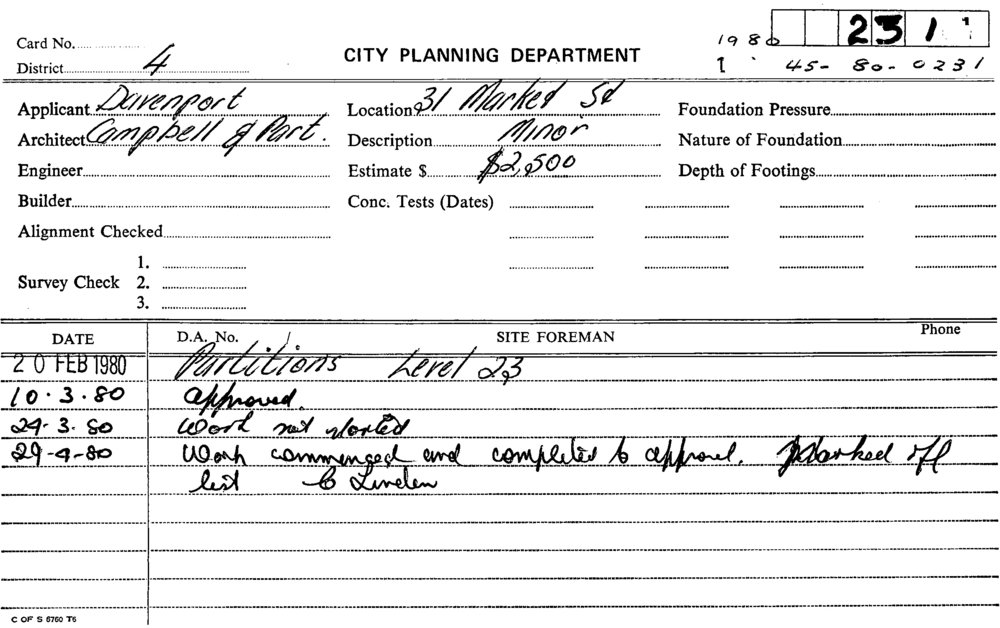 Card No. CITY PLANNING DEPARTMENT 1980 231
District 4 45-80-0231
Applicant Davenport Location 31 Market St Foundation Pressure
Architect Campbell & Part. Description Minor Nature of Foundation
Engineer Estimate $ $2,500 Depth of Footings
Builder Conc. Tests (Dates)
Alignment Checked
1.
Survey Check 2.
3.
DATE D.A. No. SITE FOREMAN Phone
20 FEB 1980 Partitions Level 23
10.3.80 Approved.
24.3.80 Work not started
29-4-80 Work commenced and completed to approval. Marked off
list C Linden
C OF S 5760 T6